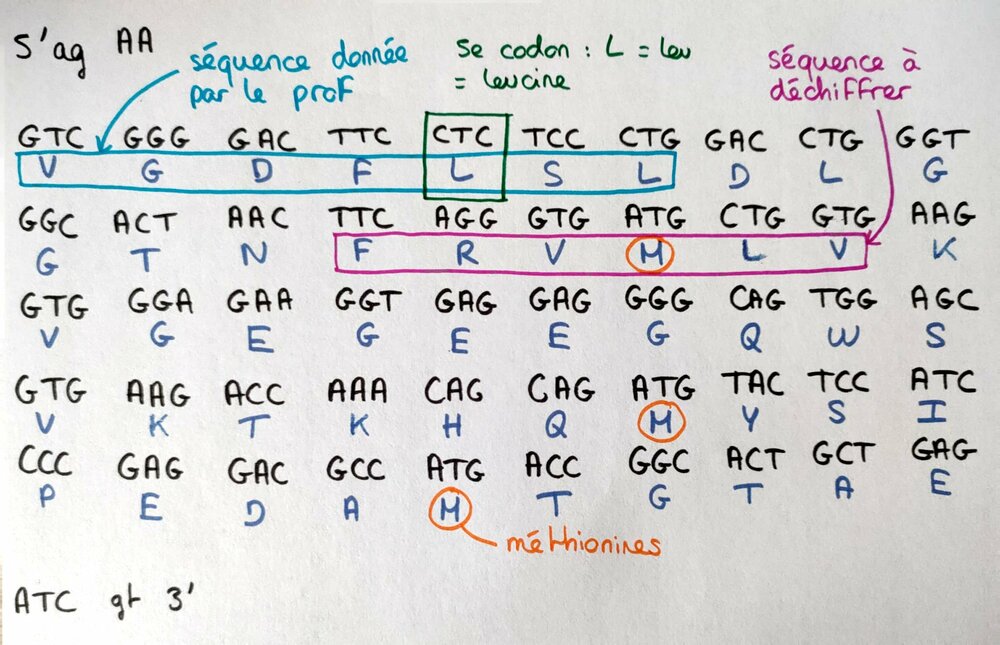 5'ag AA
séquence donnée
par le prof
5e codon : L = leu
= leucine
séquence à
déchiffrer
GTC GGG GAC TTC CTC TCC CTG GAC CTG GGT
V G D F L S L D L G
GGC ACT AAC TTC AGG GTG ATG CTG GTG AAG
G T N F R V M L V K
GTG GGA GAA GGT GAG GAG GGG CAG TGG AGC
V G E G E E G Q W S
GTG AAG ACC AAA CAG CAG ATG TAC TCC ATC
V K T K H Q M Y S I
CCC GAG GAC GCC ATG ACC GGC ACT GCT GAG
P E D A M T G T A E
méthionines
ATC gt 3'